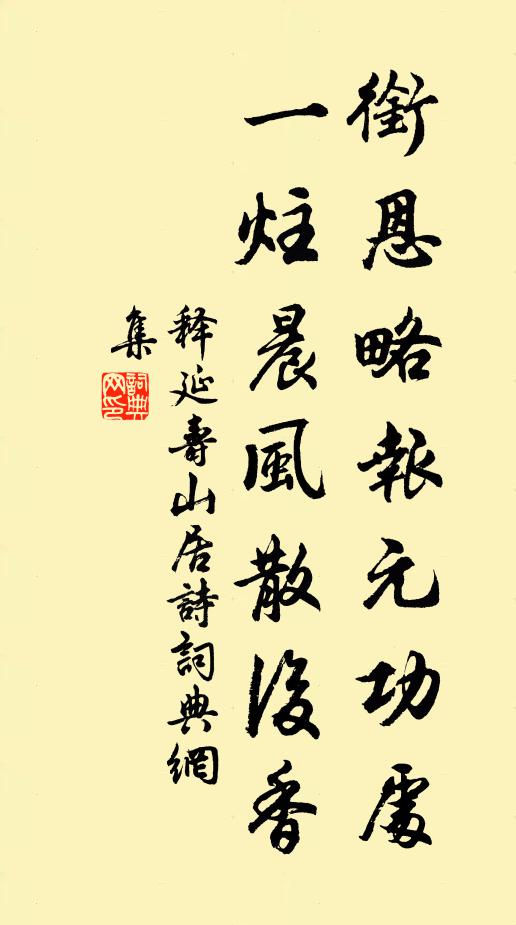 銜恩略報元功處
一炷晨風散後香
释延壽山居詩詞典網
集
詞典
网印